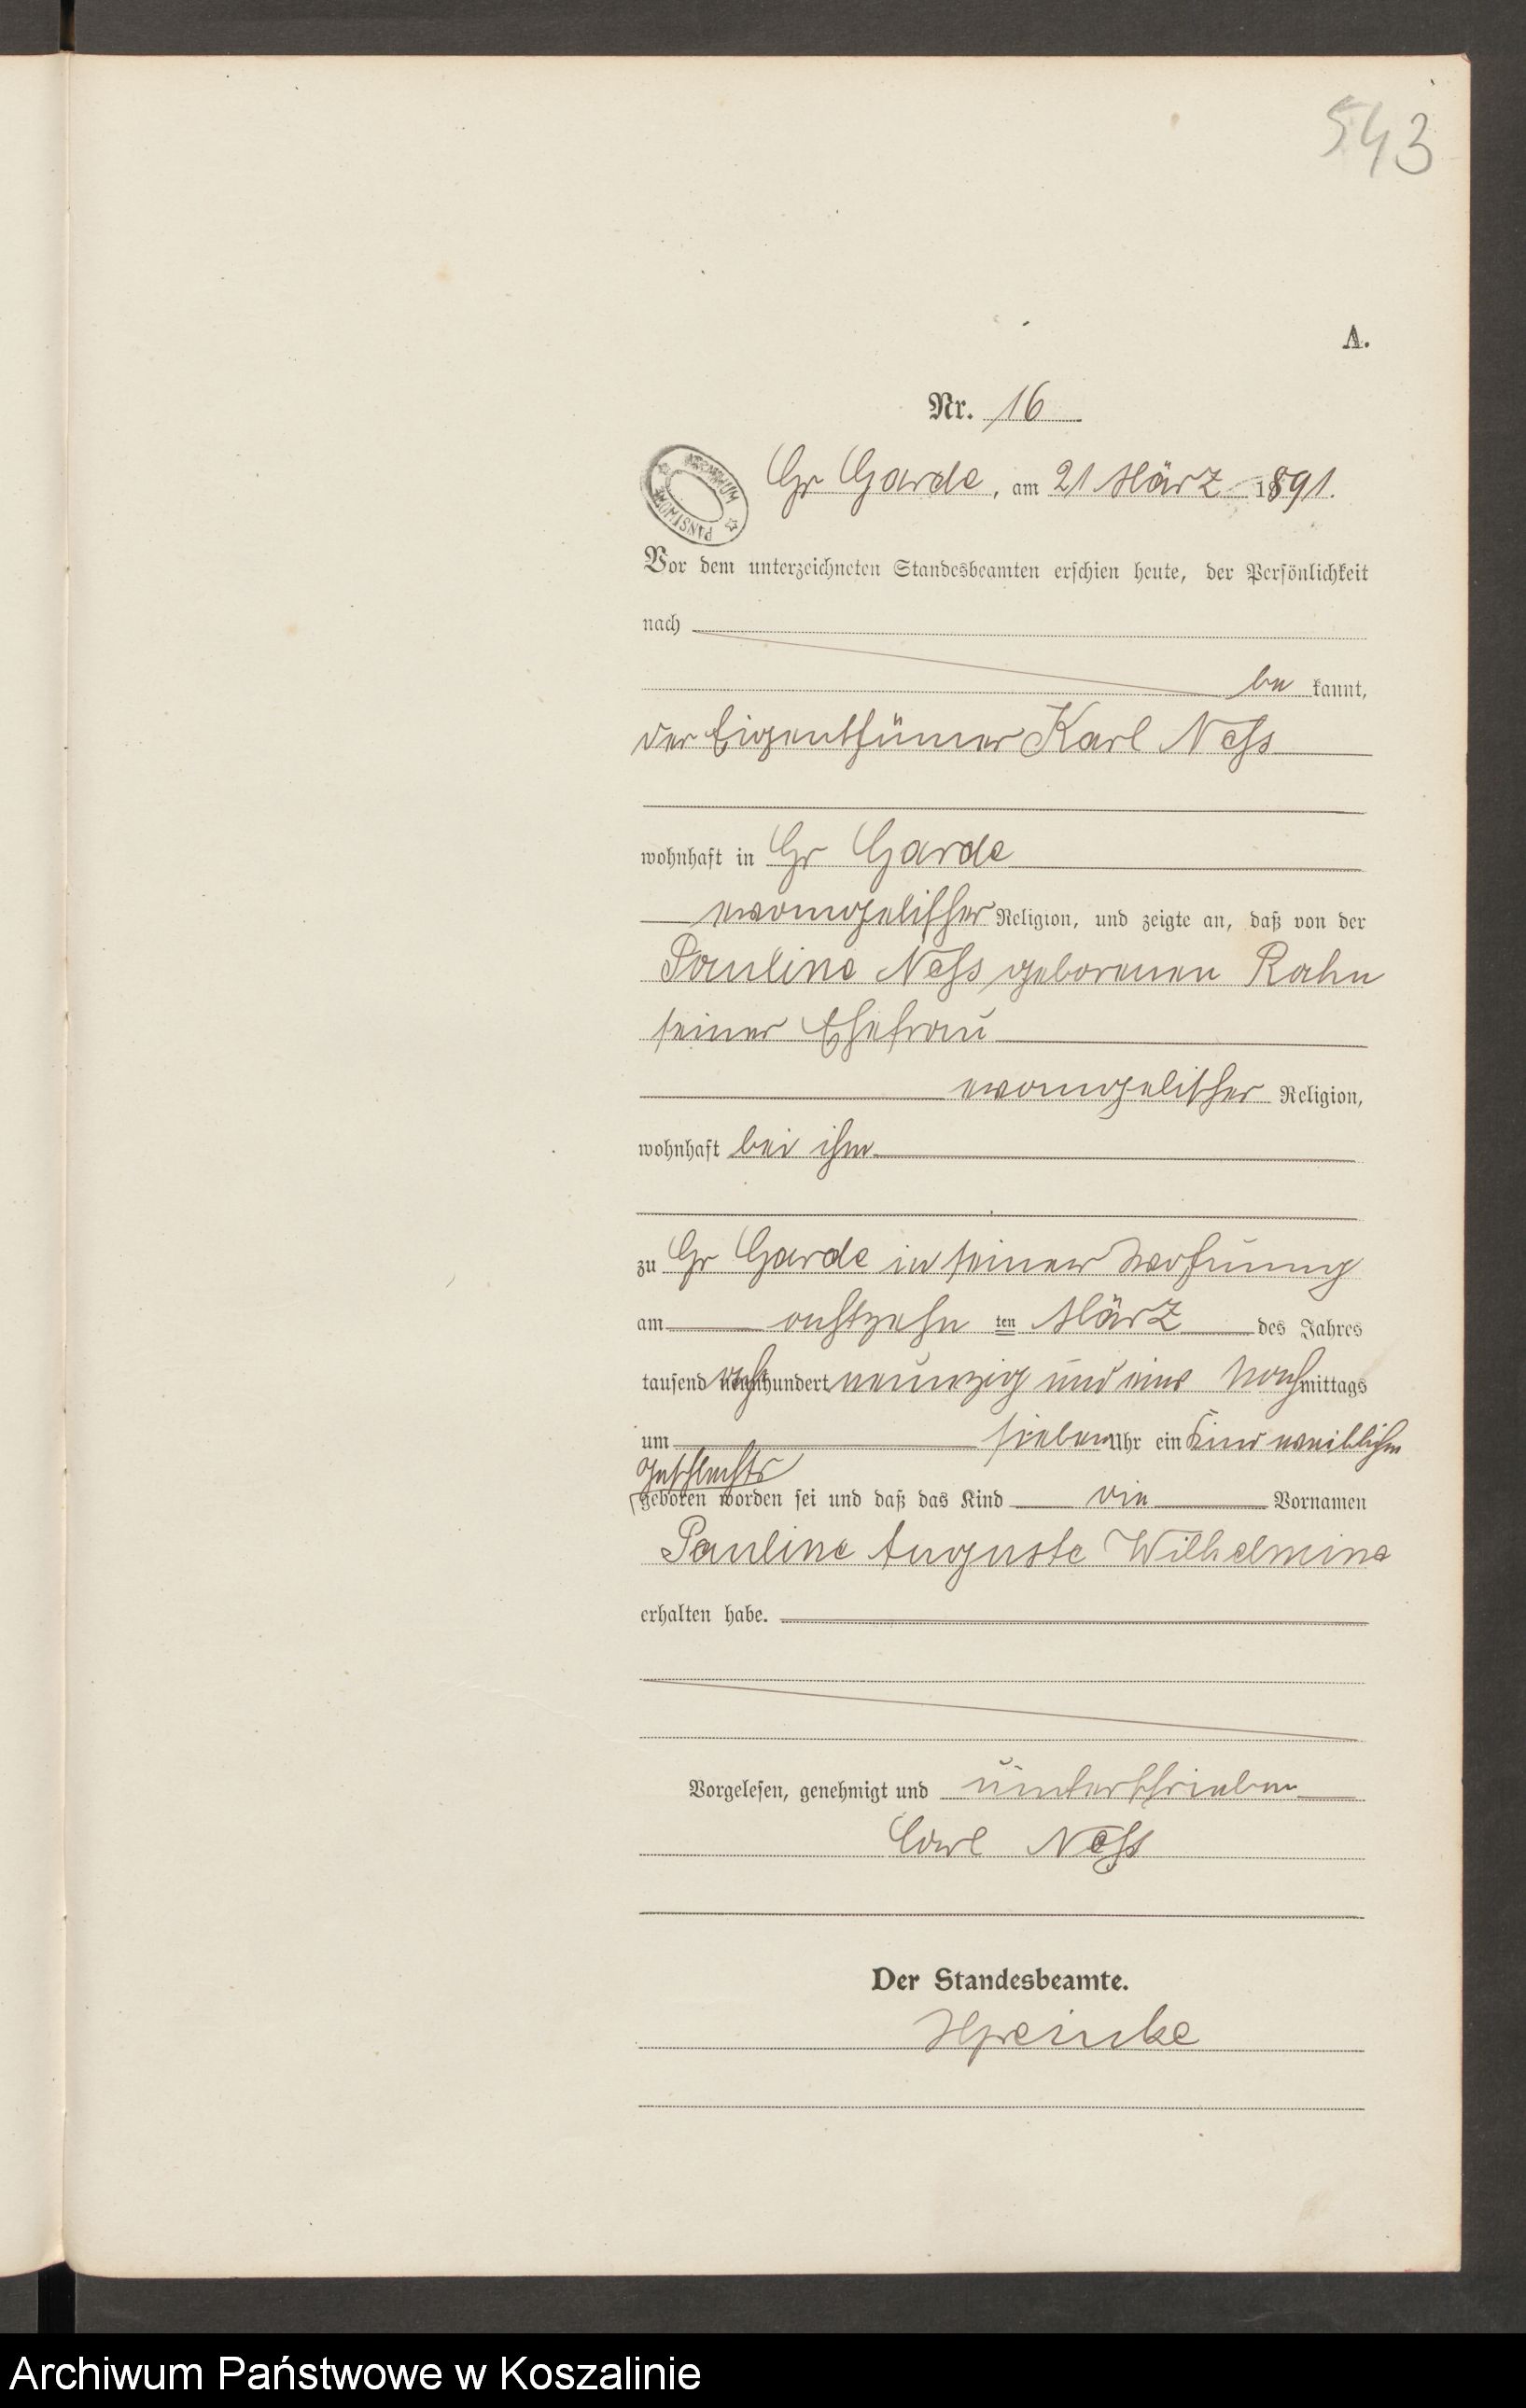 543
A.
Nr. 16
ARCHIWUM PAŃSTWOWE
Gr Garde, am 21 März 1891.
Vor dem unterzeichneten Standesbeamten erschien heute, der Persönlichkeit
nach
be kannt,
der Eigenthümer Karl Ness
wohnhaft in Gr Garde
evangelischer Religion, und zeigte an, daß von der
Pauline Ness geborenen Rahn
seiner Ehefrau
evangelischer Religion,
wohnhaft bei ihm
zu Gr Garde in seiner Wohnung
am achtzehn ten März des Jahres
tausend achthundert neunzig und eins Nachmittags
um sieben Uhr ein Kind weiblichen
Geschlechts
geboren worden sei und daß das Kind die Vornamen
Pauline Auguste Wilhelmine
erhalten habe.
Vorgelesen, genehmigt und unterschrieben
Carl Ness
Der Standesbeamte.
Archiwum Państwowe w Koszalinie